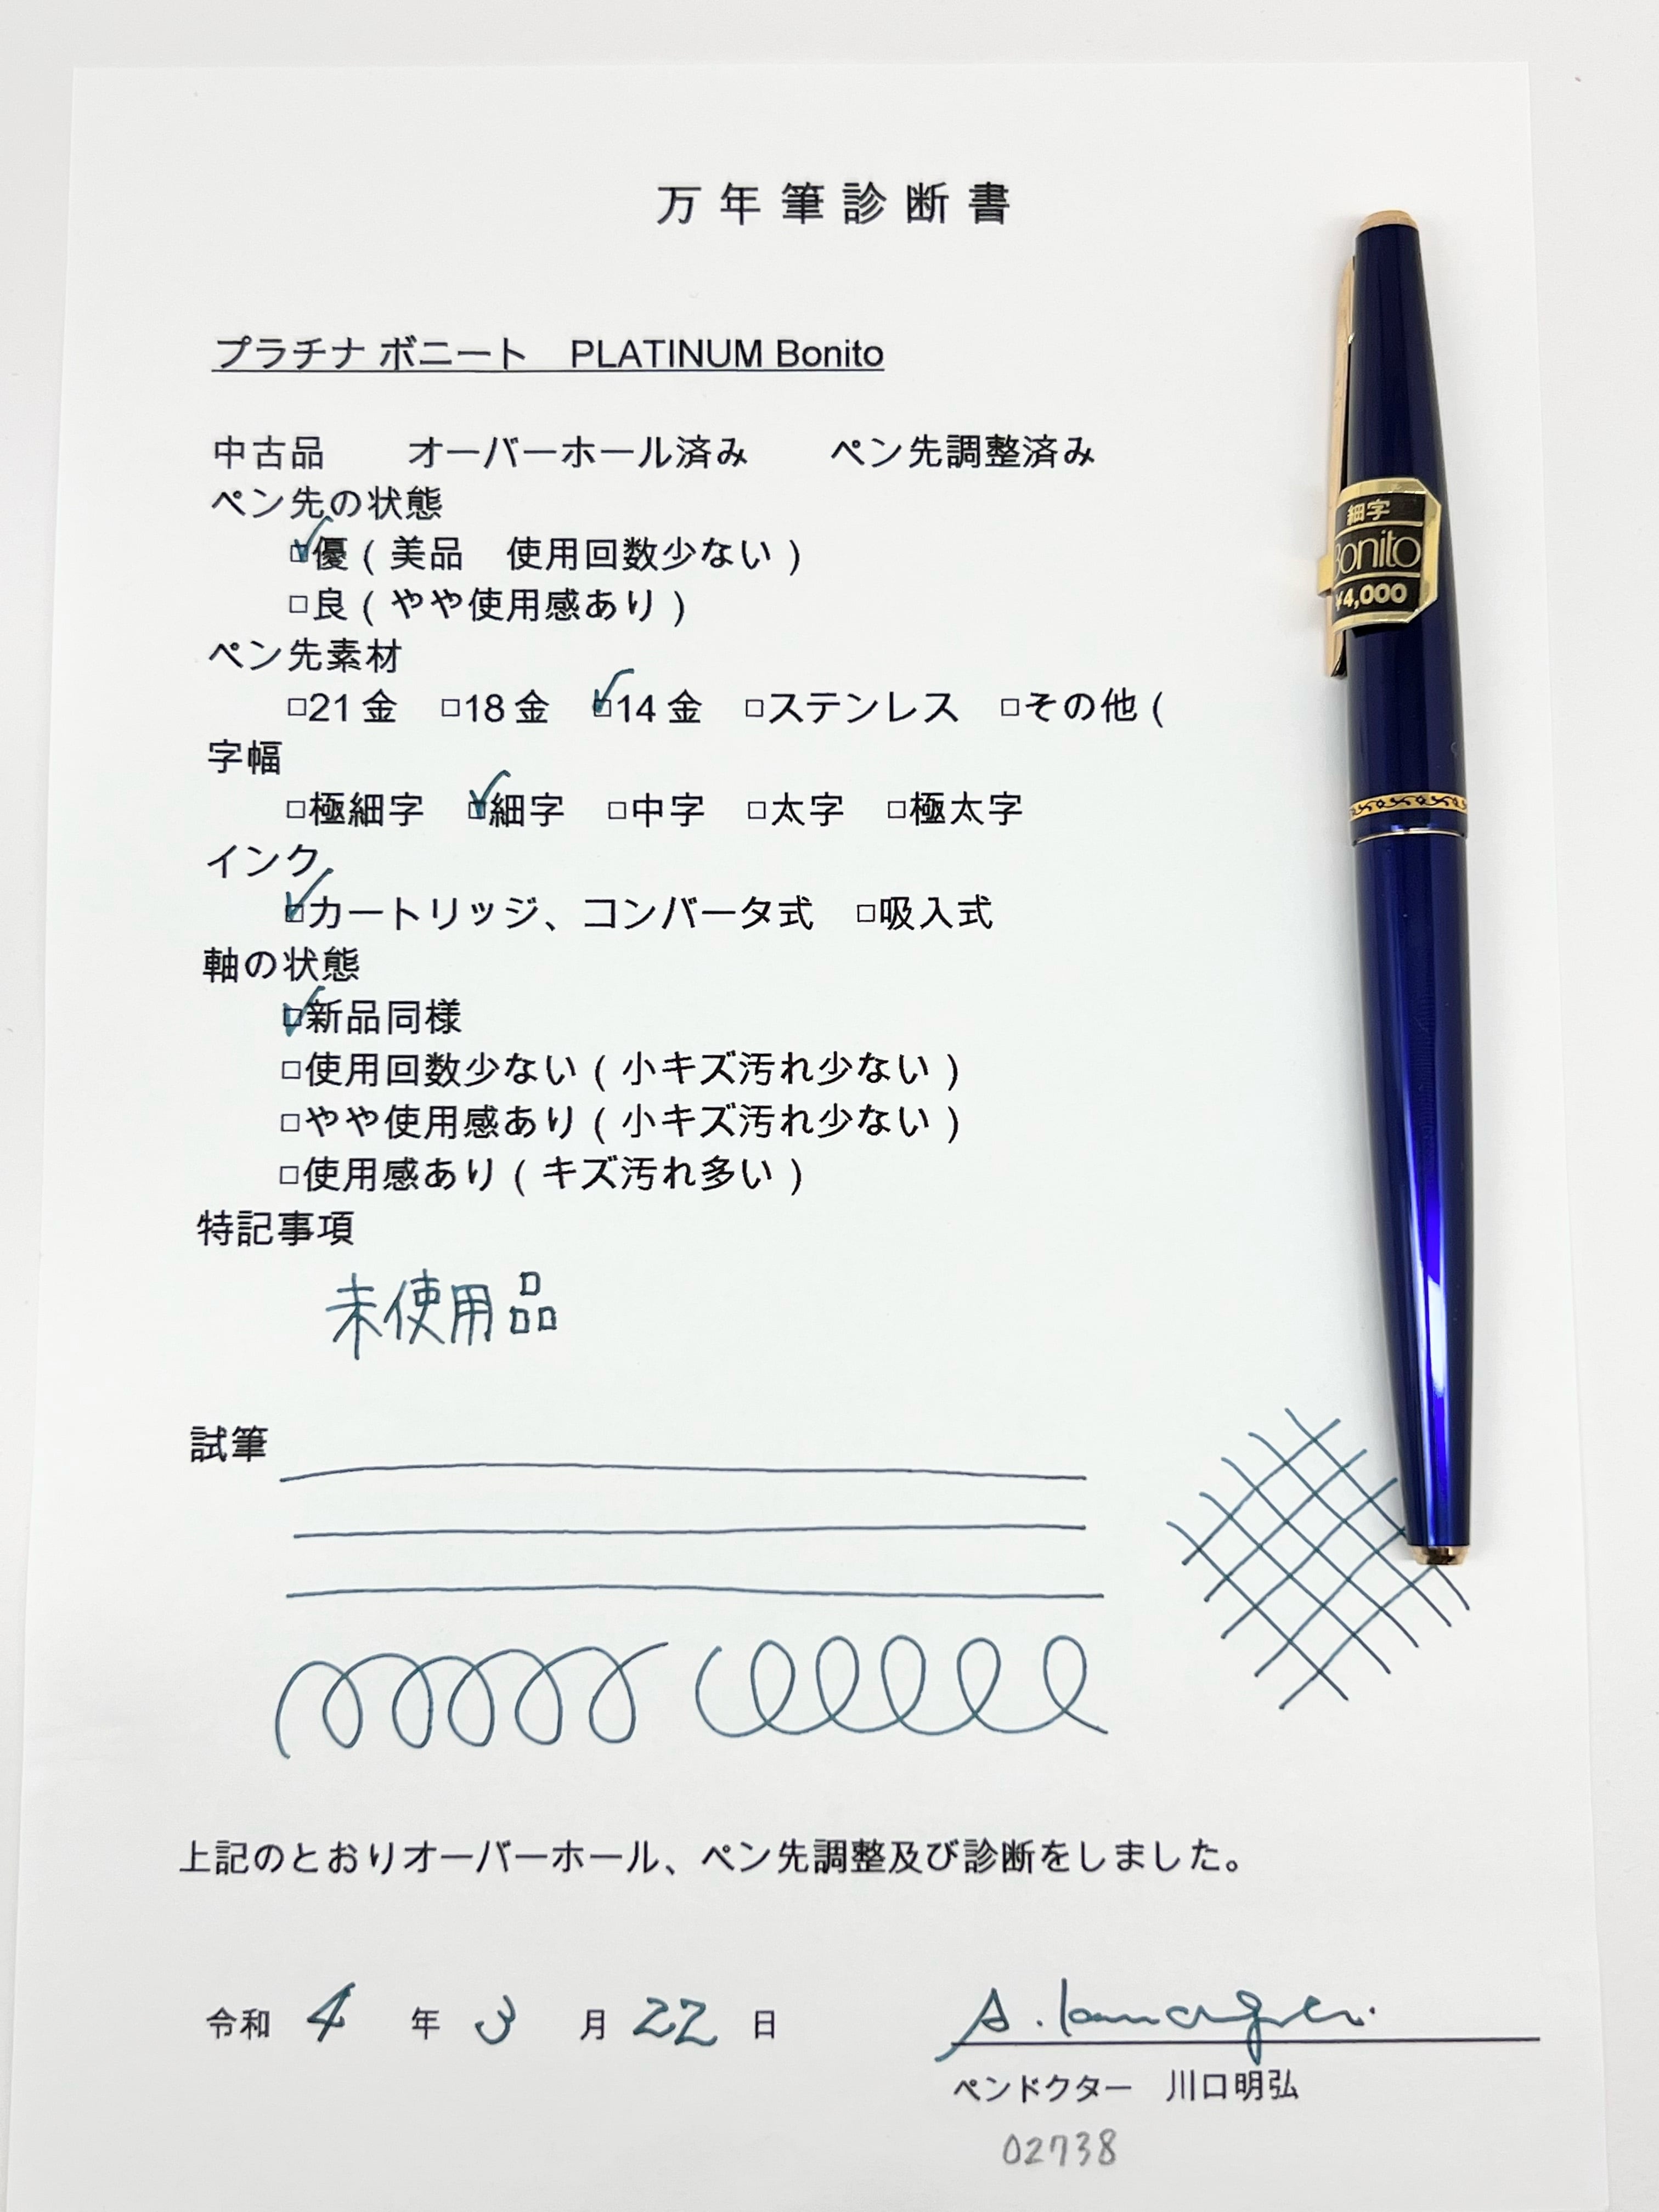 万年筆診断書
プラチナ ボニート　PLATINUM Bonito
中古品　　オーバーホール済み　　ペン先調整済み
ペン先の状態
☑優（美品　使用回数少ない）
□良（やや使用感あり）
ペン先素材
□21金　□18金　☑14金　□ステンレス　□その他（
字幅
□極細字　☑細字　□中字　□太字　□極太字
インク
☑カートリッジ、コンバータ式　□吸入式
軸の状態
☑新品同様
□使用回数少ない（小キズ汚れ少ない）
□やや使用感あり（小キズ汚れ少ない）
□使用感あり（キズ汚れ多い）
特記事項
未使用品
試筆
上記のとおりオーバーホール、ペン先調整及び診断をしました。
令和 4 年 3 月 22 日
ペンドクター　川口明弘
02738
細字
Bonito
¥4,000